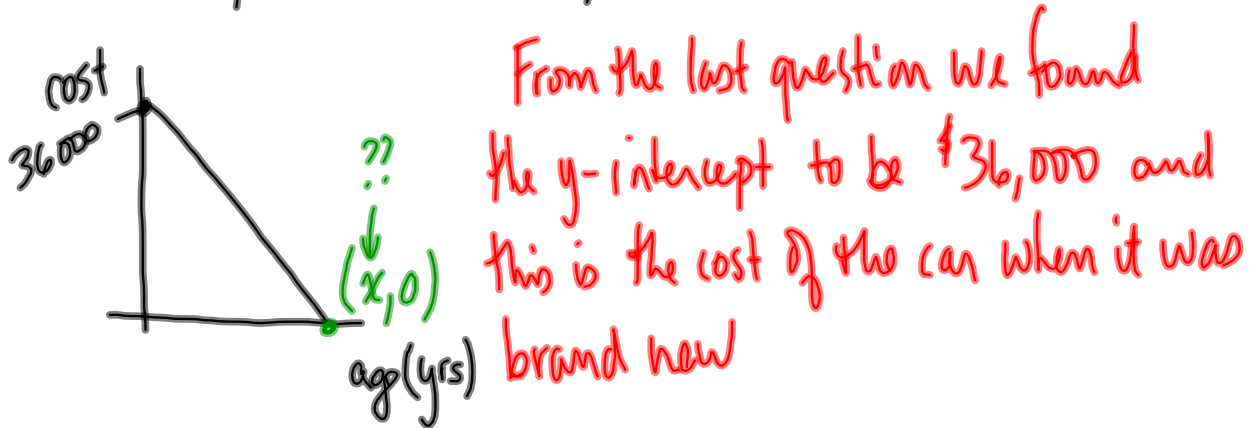 cost
36000
??
(x,0)
age(yrs)
From the last question we found
the y-intercept to be $36,000 and
this is the cost of the car when it was
brand new